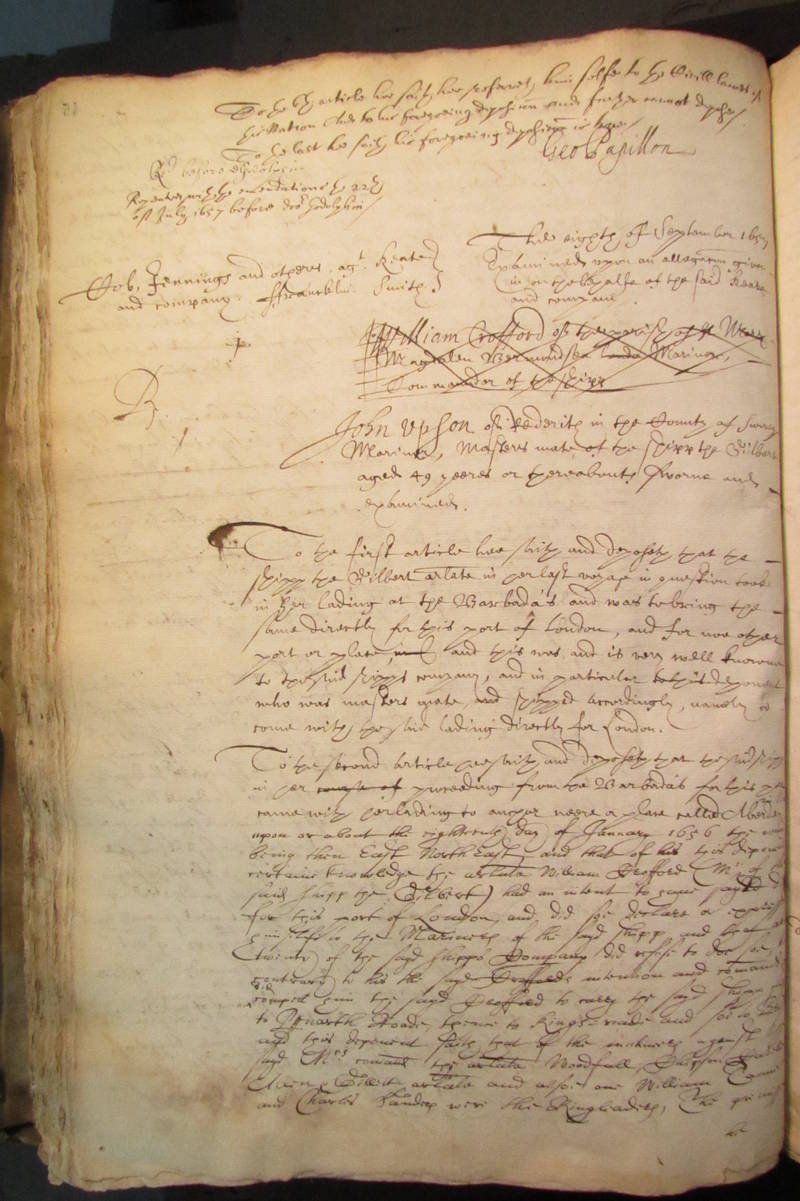 To the 4th article hee saith hee referreth him selfe to the Civill lawes of
this Nation And to his foregoeing deposition and further cannot depose
To the last hee saith his foregoeing deposition is true
Geo Papillon
Rd before
Repeated with the emendations the 22th
of July 1657 before doctor Godolphin
The eighth of September 1657
Examined upon an allegation given
in on the behalfe of the said Keate
and company.
Job, Jennings and others agt Keate
and company. ffrancklin. Smith
William Crofford of the parish of St Mary
Magdalen Bermondsea Mariner,
Commander of the shipp
Rp. 1
John Upson of Rederith in the County of Surrey
Mariner, Masters mate of the shipp the Gilbert
aged 49 yeeres or thereabouts sworne and
examined.
To the first article hee saith and deposeth that the
shipp the Gilbert arlate in her last voyage in question tooke
in her lading at the Barbada's and was to bring the
same directly for this port of London, and for noe other
port or place, and this was and is very well knowne
to the said shipps company, and in particular to this deponent
who was masters mate, and shipped accordingly, namely to
come with the said lading directly for London.
To the second article hee saith and deposeth that the said shipp
in her course of proceeding from the Barbada's for this port
came with her lading to anchor neere a place called
upon or about the eighteenth day of January 1656 the
being then East North East, and that of his this deponents
certaine knowledge the arlate William Crofford (Mr of the
said shipp the Gilbert) had an intent to have sayled
for this port of London, and did soe declare or expresse
himselfe to the Mariners of the sayd shipp, and
(twenty) of the sayd shipps Company did refuse to doe soe,
contrary to his the sayd Croffords intention and comand
did compell him the sayd Crofford to carry the sayd shipp
to Penarth Roade, thence to Kings-roade and soe to
and this deponent saith that of the mutineers against
sayd Mrs comand the arlate Woodfall,
Gillett arlate and alsoe one William
and Charles Sanders were the Ringleaders, The
he